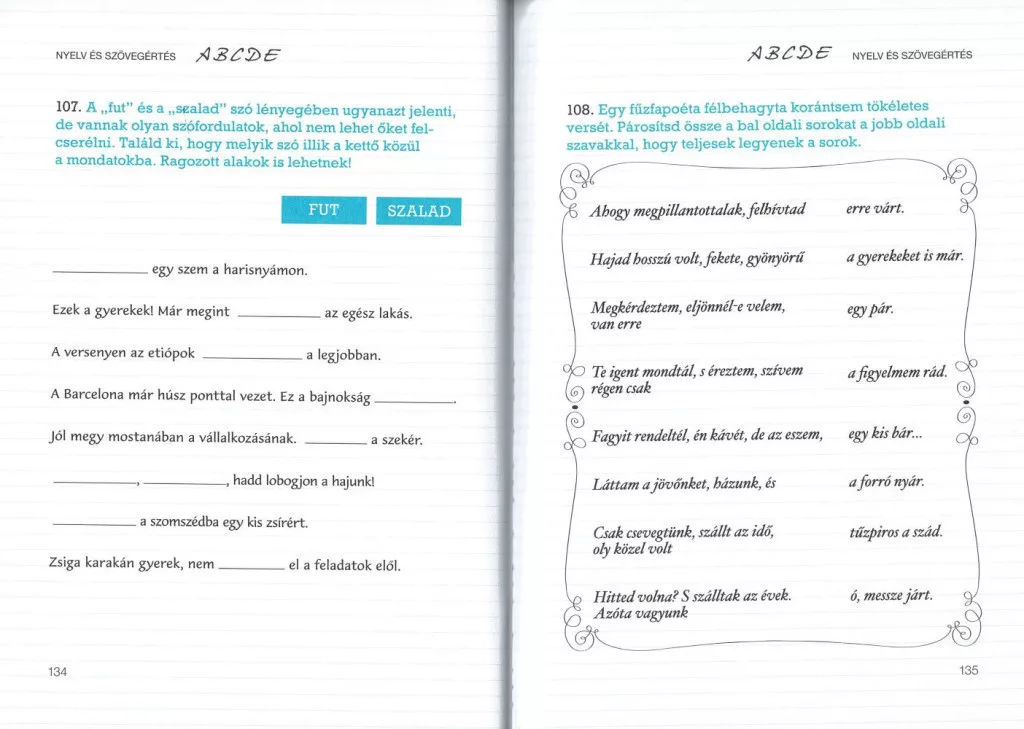 NYELV ÉS SZÖVEGÉRTÉS ABCDE
107. A „fut” és a „szalad” szó lényegében ugyanazt jelenti,
de vannak olyan szófordulatok, ahol nem lehet őket fel-
cserélni. Találd ki, hogy melyik szó illik a kettő közül
a mondatokba. Ragozott alakok is lehetnek!
FUT SZALAD
____________ egy szem a harisnyámon.
Ezek a gyerekek! Már megint ___________ az egész lakás.
A versenyen az etiópok _____________ a legjobban.
A Barcelona már húsz ponttal vezet. Ez a bajnokság __________.
Jól megy mostanában a vállalkozásának. ________ a szekér.
___________, ___________, hadd lobogjon a hajunk!
___________ a szomszédba egy kis zsírért.
Zsiga karakán gyerek, nem _________ el a feladatok elől.
134
ABCDE NYELV ÉS SZÖVEGÉRTÉS
108. Egy fűzfapoéta félbehagyta korántsem tökéletes
versét. Párosítsd össze a bal oldali sorokat a jobb oldali
szavakkal, hogy teljesek legyenek a sorok.
Ahogy megpillantottalak, felhívtad erre várt.
Hajad hosszú volt, fekete, gyönyörű a gyerekeket is már.
Megkérdeztem, eljönnél-e velem, egy pár.
van erre
Te igent mondtál, s éreztem, szívem a figyelmem rád.
régen csak
Fagyit rendeltél, én kávét, de az eszem, egy kis bár...
Láttam a jövőnket, házunk, és a forró nyár.
Csak csevegtünk, szállt az idő, tűzpiros a szád.
oly közel volt
Hitted volna? S szálltak az évek. ó, messze járt.
Azóta vagyunk
135